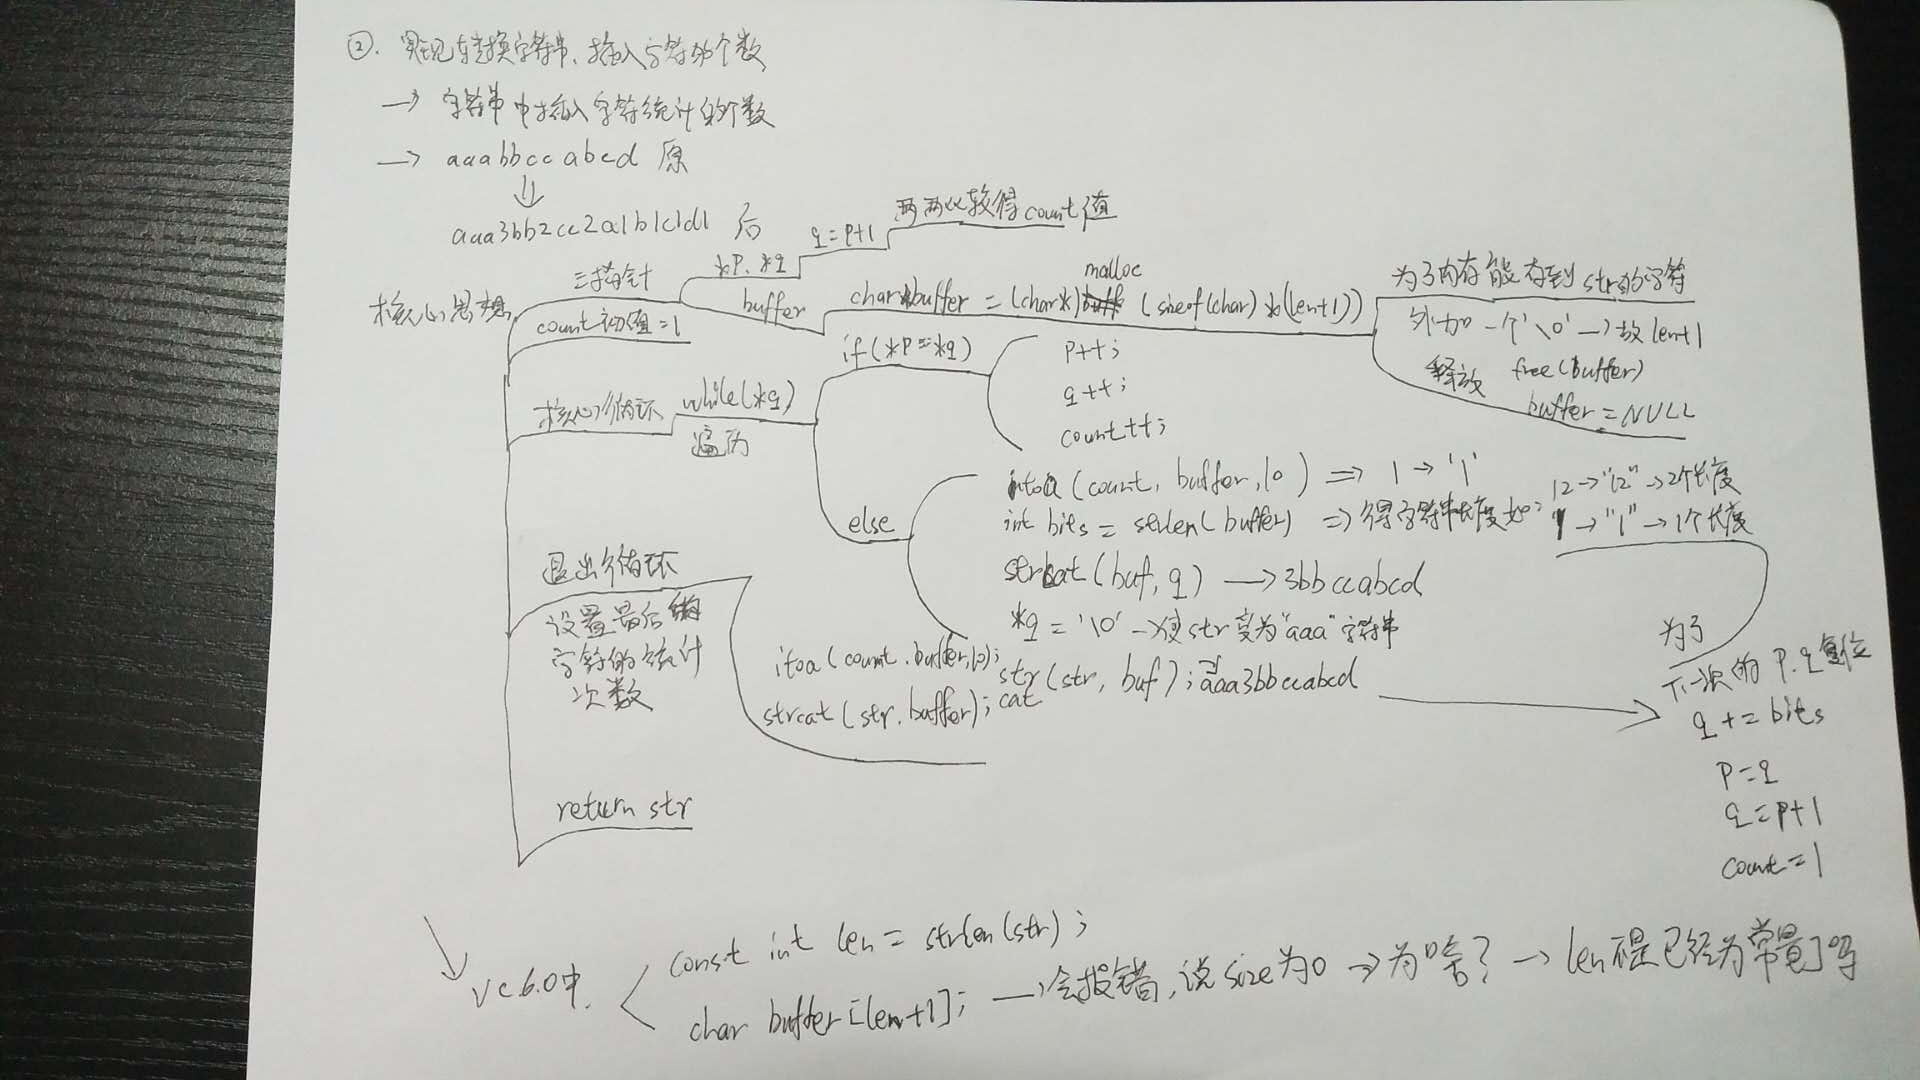 ②. 实现转换字符串、插入字符的个数
→ 字符串中插入字符统计的个数
→ aaabbccabcd 原
⇓
aaa3bb2cc2a1b1c1d1 后
核心思想
三指针
*p. *q
q=p+1
两两比较得count值
buffer
char*buffer = (char*)malloc (sizeof(char)*(len+1))
为了内存能存到str的字符
外加一个'\0' → 故len+1
释放 free(buffer)
buffer = NULL
count初值=1
核心循环
while(*q)
遍历
if(*p==*q)
p++;
q++;
count++;
else
itoa(count, buffer, 10) ⇒ 1 → '1'
int bits = strlen(buffer) ⇒ 得字符串长度如:
12→"12"→2个长度
1→"1"→1个长度
strcat(buf, q) → 3bbccabcd
*q = '\0' → 使str变为"aaa"字符串
strcat(str, buf); aaa3bbccabcd
为了
下一次的p.q复位
q += bits
p=q
q=p+1
count=1
退出循环
设置最后
字符的统计
次数
itoa(count.buffer,10);
strcat(str.buffer);
return str
VC6.0中.
const int len = strlen(str);
char buffer[len+1]; → 会报错,说size为0 → 为啥? → len不是已经为常量了吗